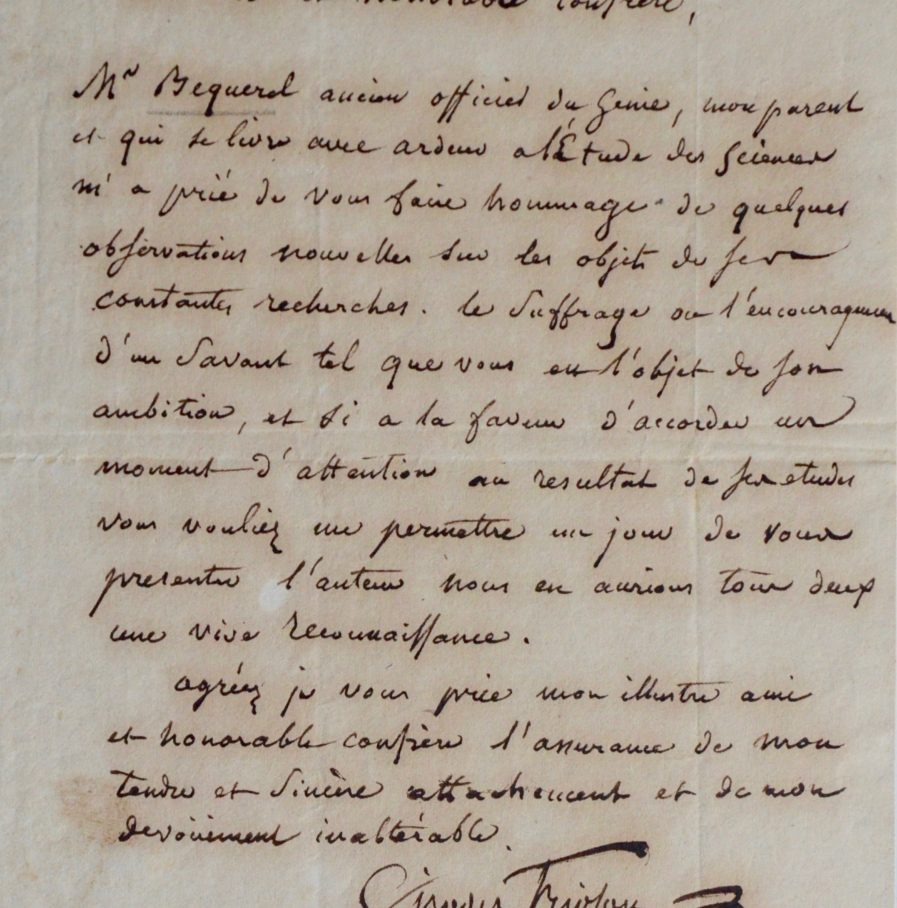 et honorable confrère,
Mr Bequerel ancien officier du Genie, mon parent
et qui se livre avec ardeur a l'Etude des Sciences
m'a prié de vous faire hommage de quelques
observations nouvelles sur les objets de ses
constantes recherches. le Suffrage ou l'encouragement
d'un Savant tel que vous est l'objet de son
ambition, et si a la faveur d'accorder un
moment d'attention au resultat de ses etudes
vous vouliez me permettre un jour de vous
presenter l'auteur nous en aurions tous deux
une vive reconnaissance.
agréez je vous prie mon illustre ami
et honorable confrère l'assurance de mon
tendre et Sincère attachement et de mon
devoüement inalterable.
Girodet Trioson